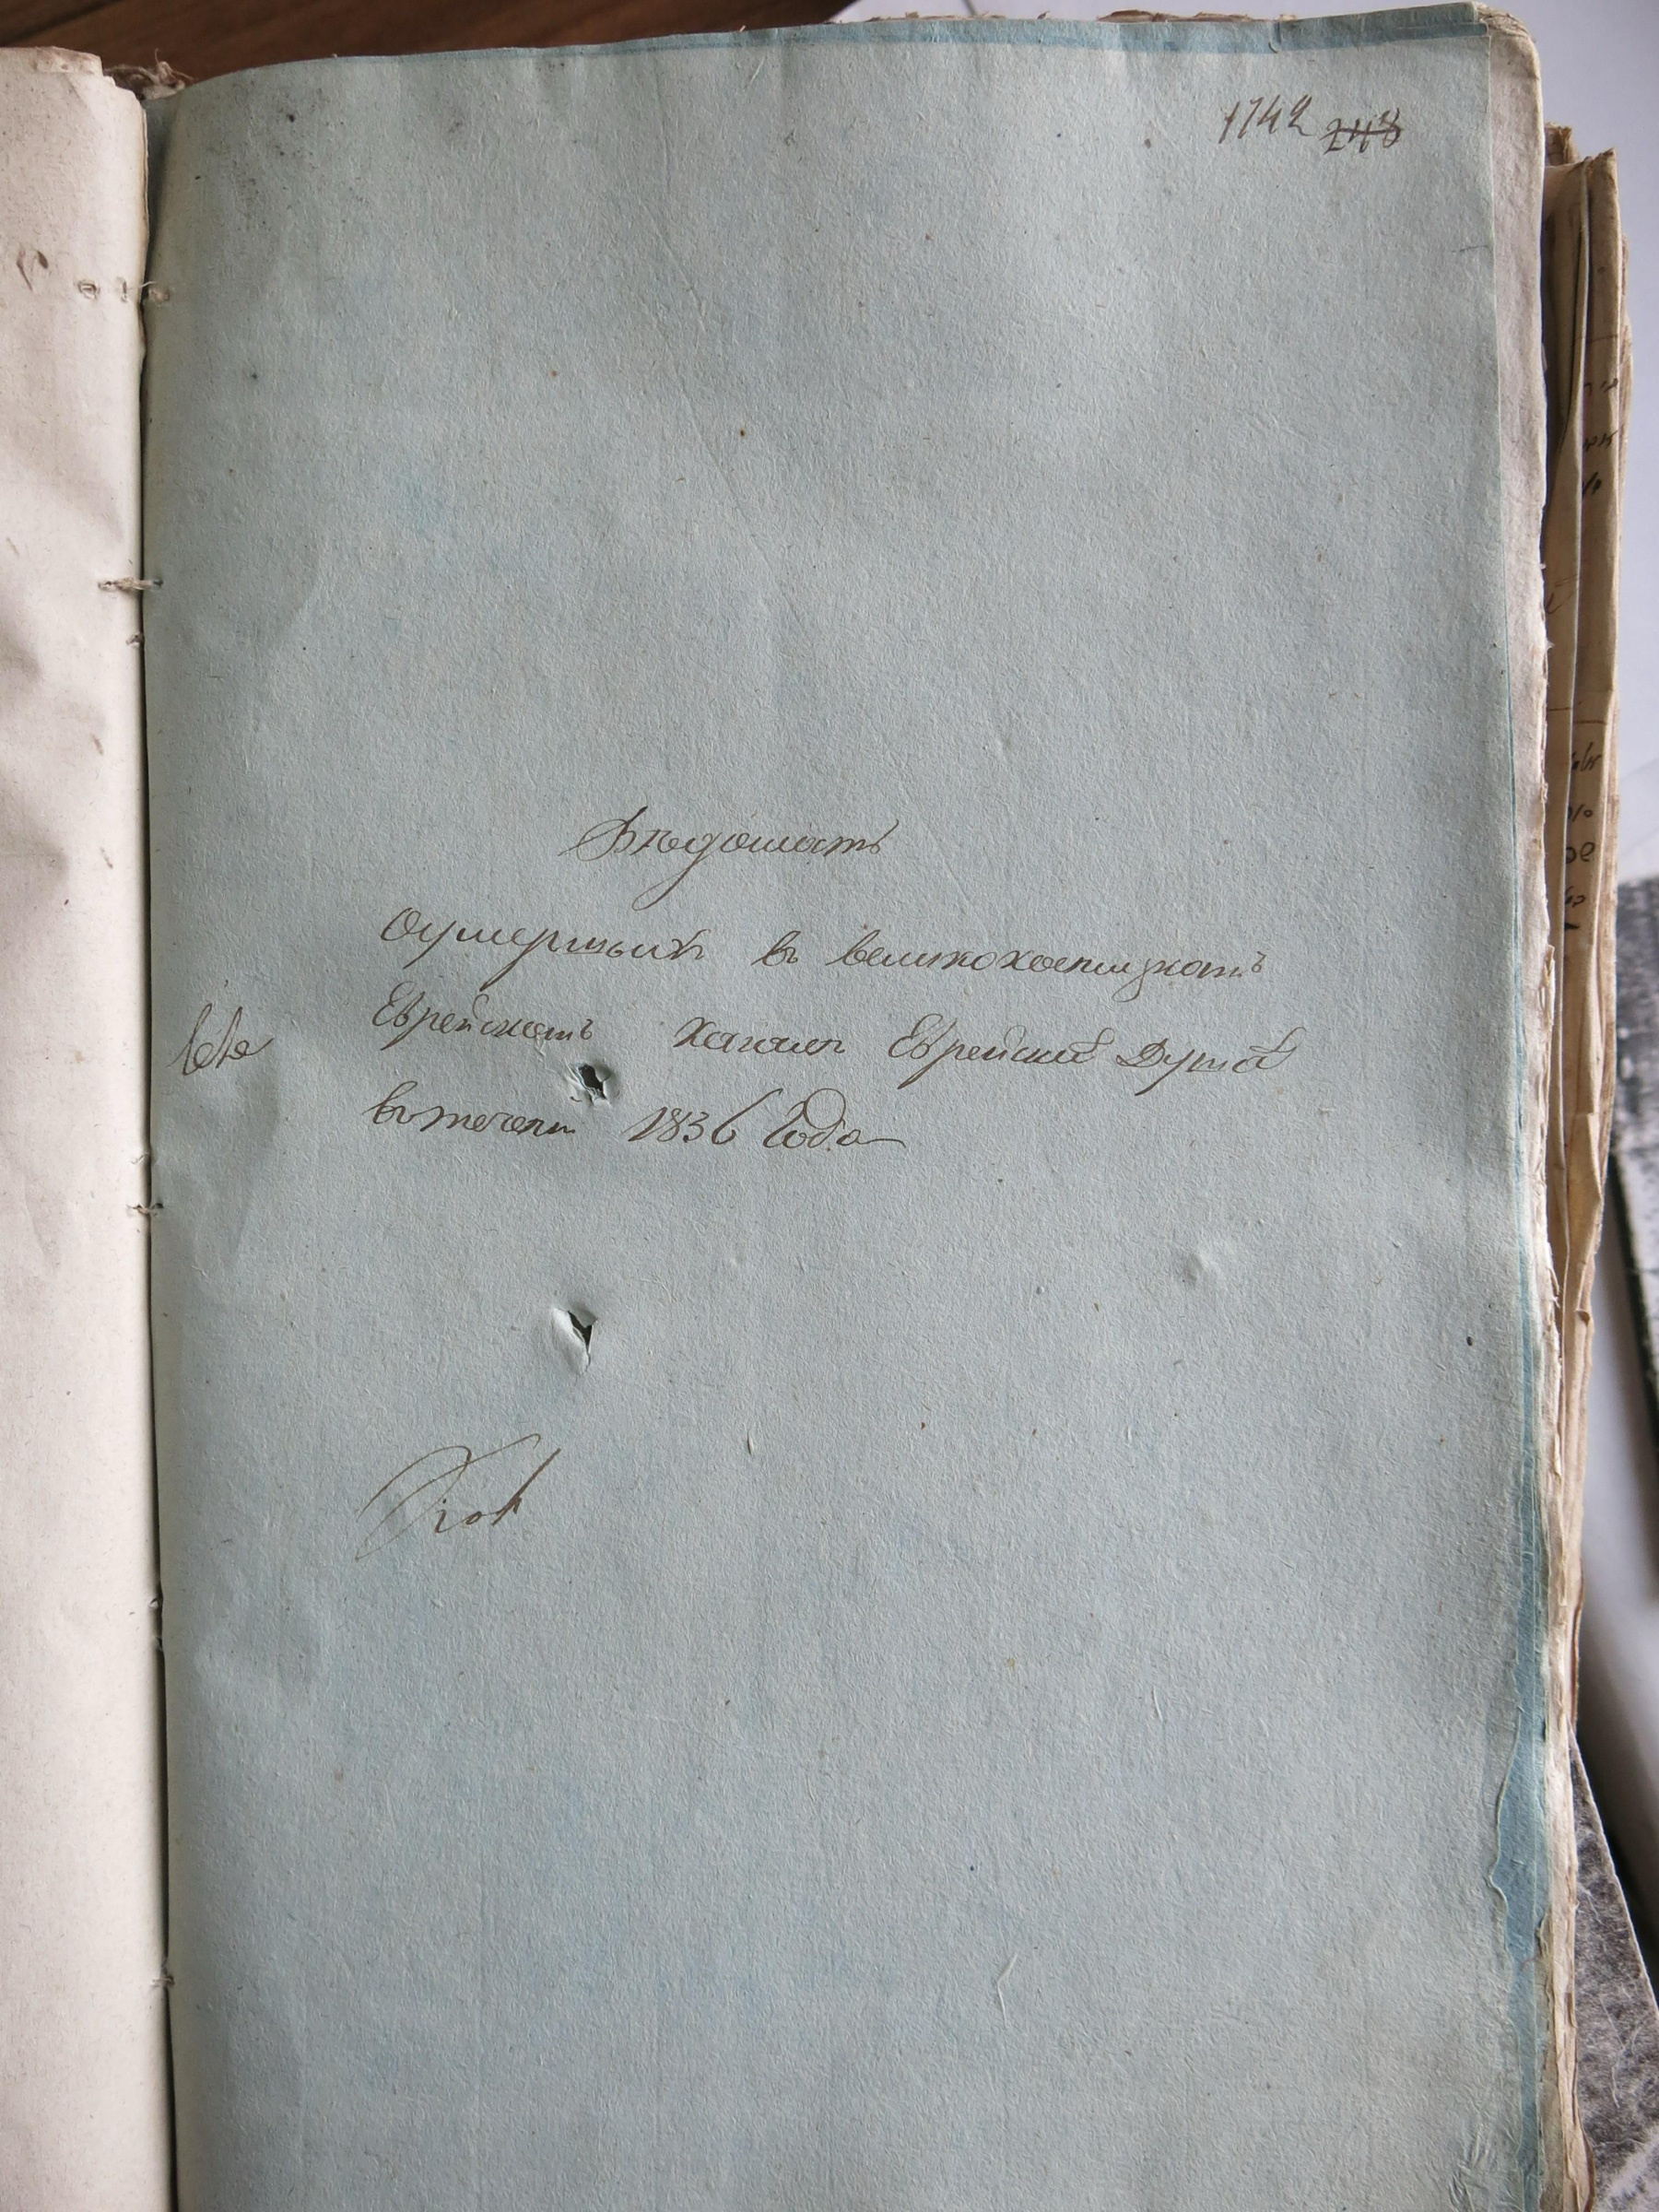 1742 248
Вѣдомость
Оумершыхъ въ великохоспицкомъ
Еврейскомъ Кагалѣ Еврейскихъ Душахъ
въ течени 1836 Года